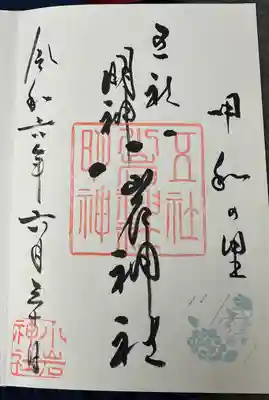 甲和の里
五社
明神
小岩神社
令和六年六月三十日
五社
明神
小岩
神社